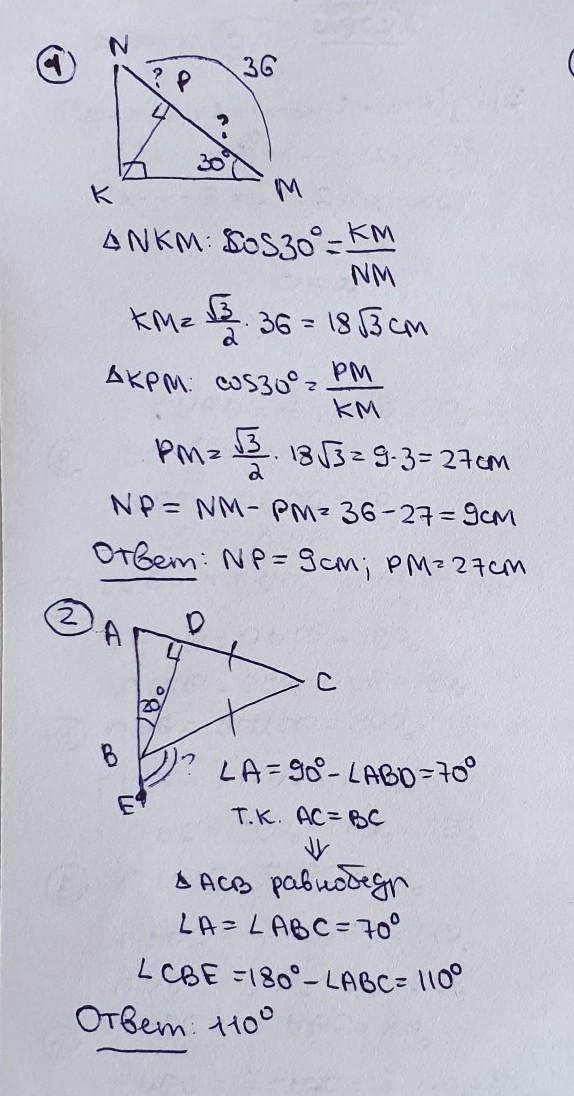 1
N
? P 36
?
30°
K M
△NKM: cos30° = KM/NM
KM = √3/2 · 36 = 18√3 cm
△KPM: cos30° = PM/KM
PM = √3/2 · 18√3 = 9·3 = 27cm
NP = NM - PM = 36 - 27 = 9cm
Ответ: NP = 9cm; PM = 27cm
2
A D
C
20°
B ?
E
∠A = 90° - ∠ABD = 70°
т.к. AC = BC
⇓
△ACB равнобедр
∠A = ∠ABC = 70°
∠CBE = 180° - ∠ABC = 110°
Ответ: 110°